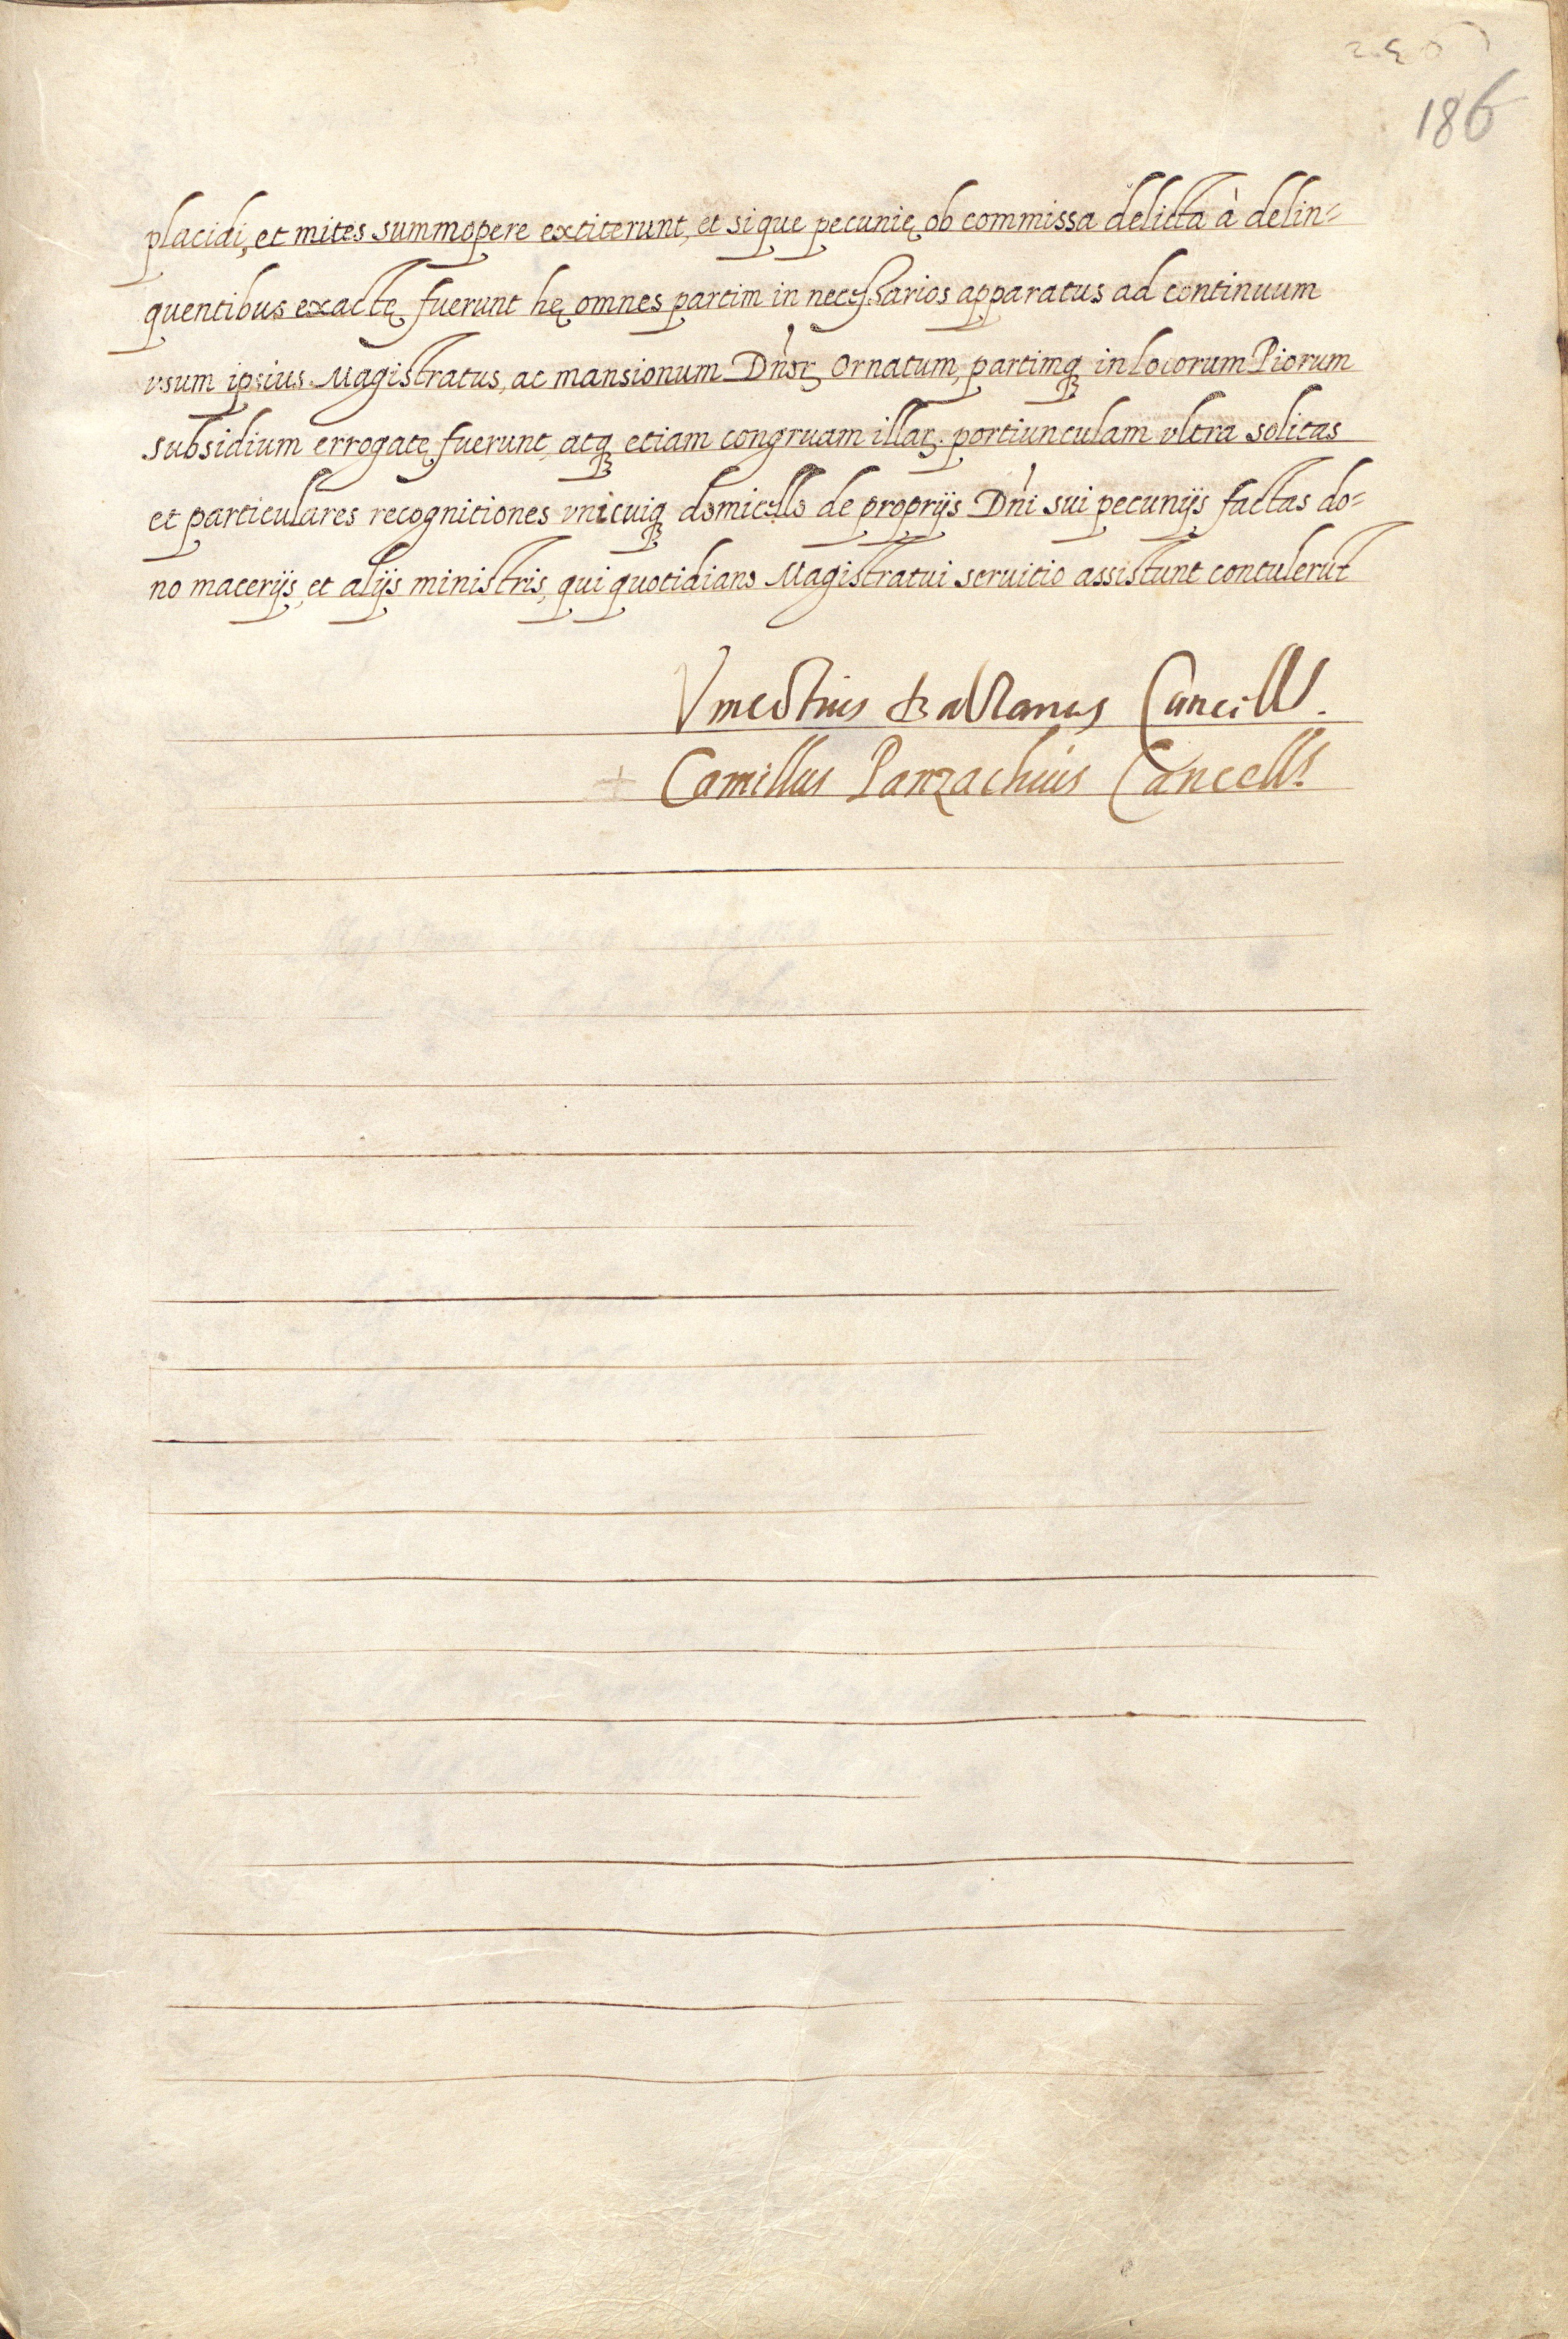 186
placidi, et mites summopere extiterunt, et si que pecunię ob commissa delicta à delin=
quentibus exactę fuerunt hę omnes partim in necessarios apparatus ad continuum
vsum ipsius Magistratus, ac mansionum Dn̄orꝝ Ornatum, partimqꝫ in locorum Piorum
subsidium errogatę fuerunt, atqꝫ etiam congruam illarꝝ portiunculam vltra solitas
et particulares recognitiones vnicuiqꝫ domicello de proprijs Dn̄i sui pecunijs factas do=
no macerijs, et alijs ministris, qui quotidiano Magistratui seruitio assistunt contulerūt
Cancells.
Camillus Panzachius Cancells.